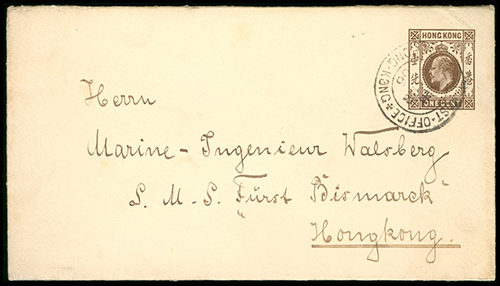 HONGKONG
壹 香
ONE CENT
HONG-KONG ST-OFFICE
Herrn
Marine-Ingenieur Walsberg
S. M. S. "Fürst Bismarck"
Hongkong.